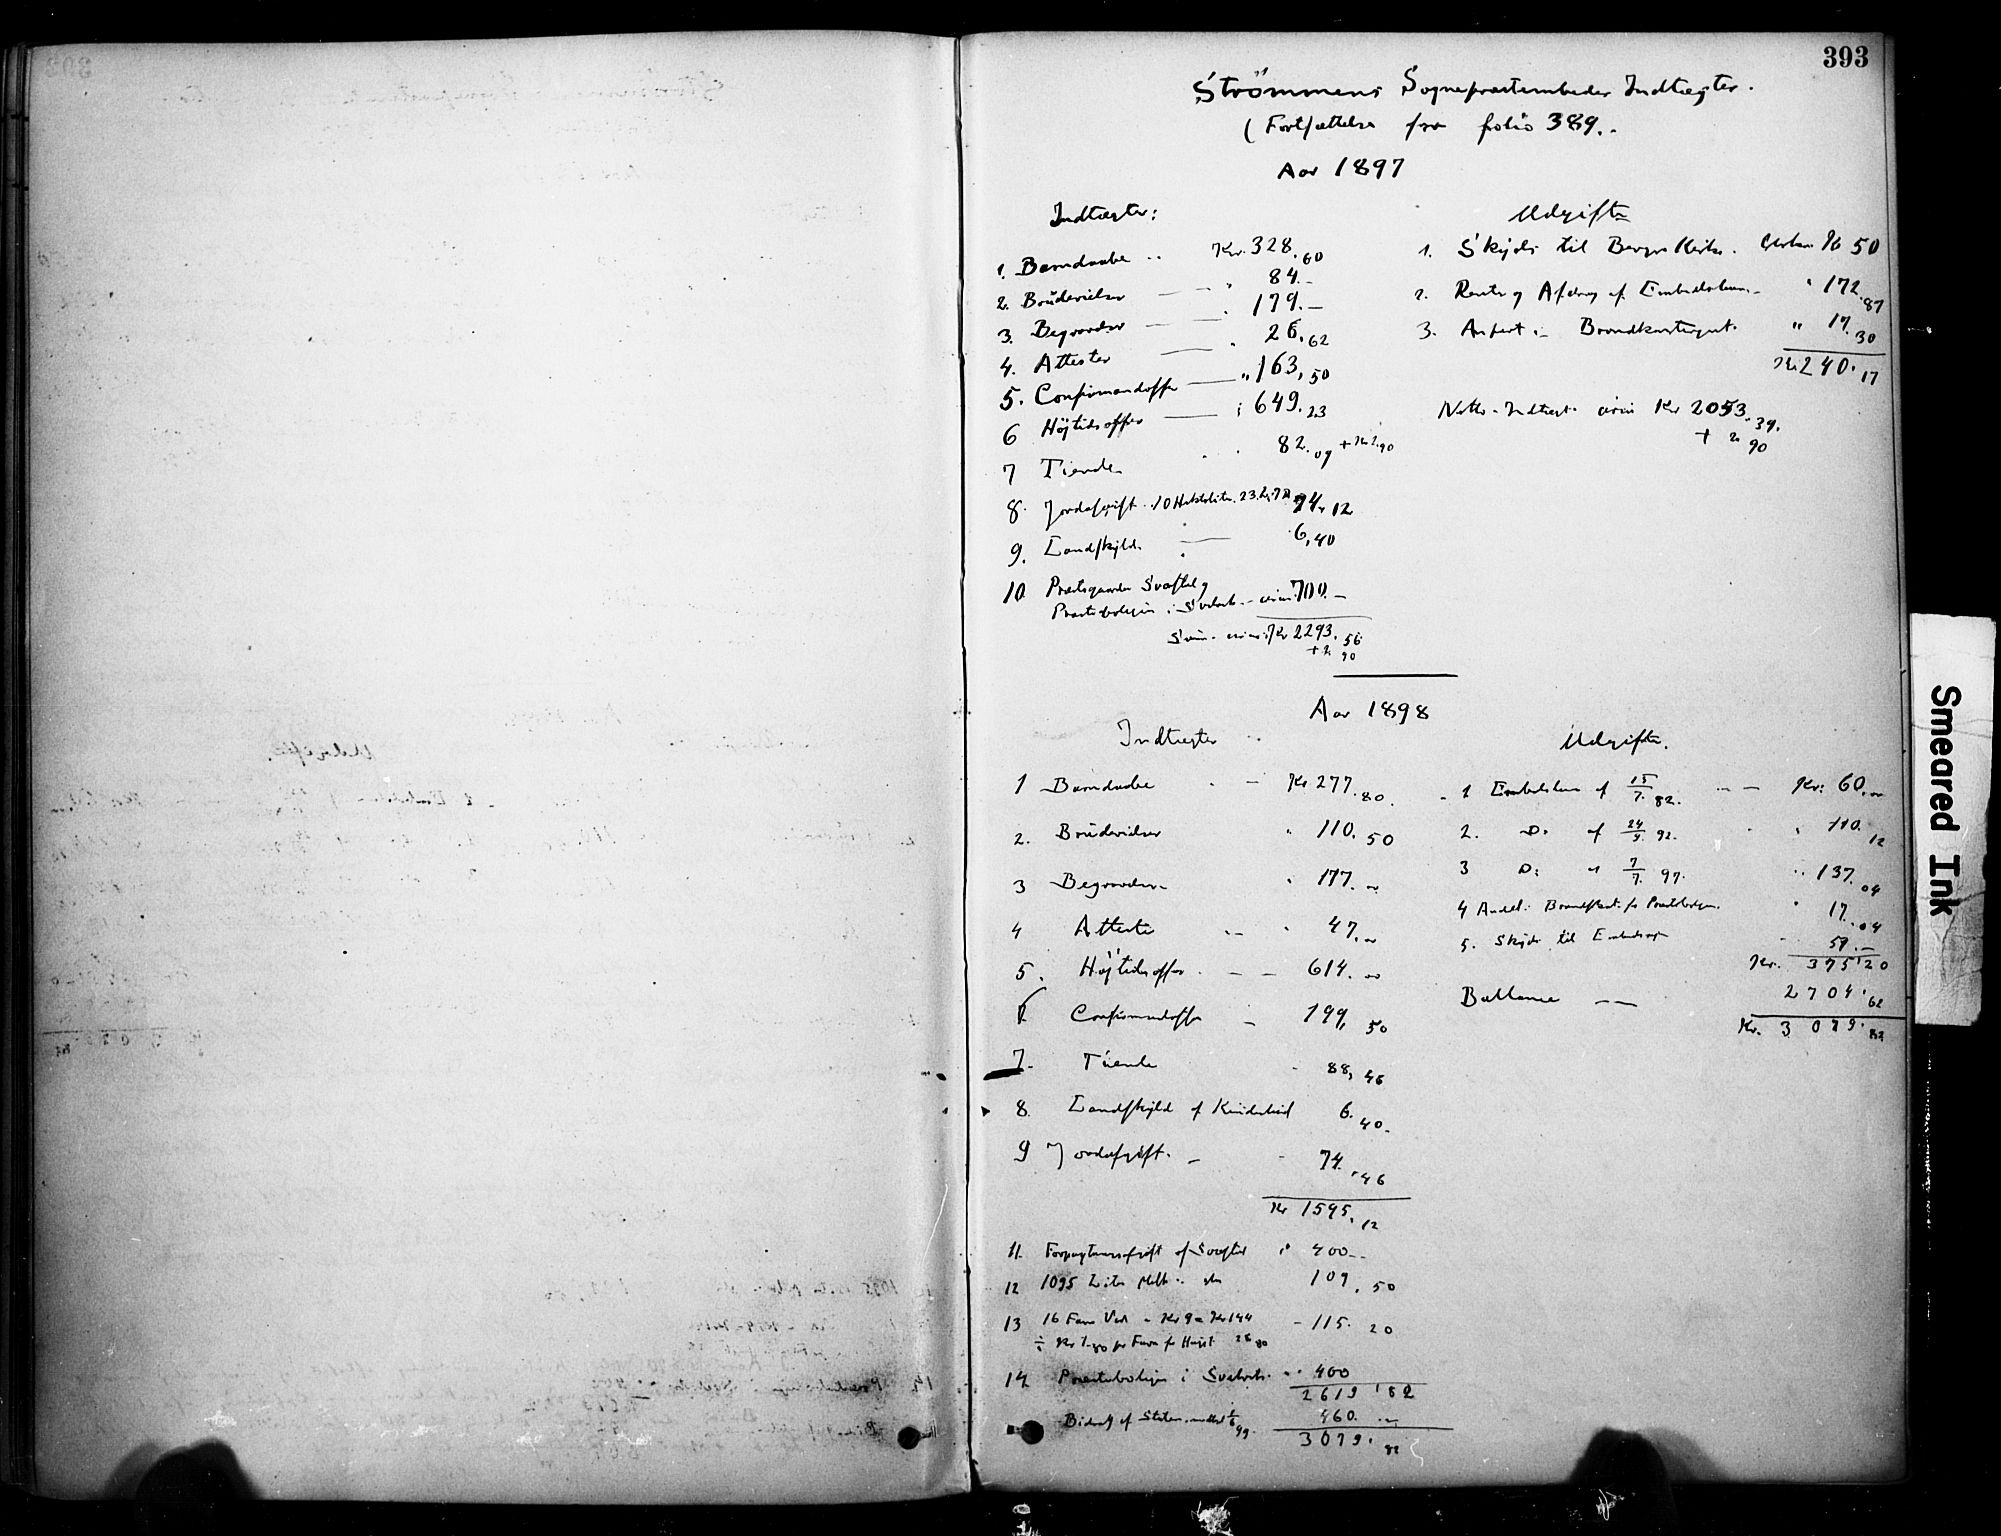 393
Strömmens Sognepræstembedes Indtægter.
(Fortsættelse fra folio 389.
Aar 1897
Indtægter:
1. Barnedaabe Kr. 328.60
2. Brudevielser 84.-
3. Begravelser 179.-
4. Attester 26,62
5. Confirmandoffer 163,50
6 Højtidsoffer 649.23
7 Tiende 82.09 + Kr 2.90
8. Jordafgift 10 Hektoliter 74,12
9. Landskyld 6,40
10. Præstegaarden Svaftel og
Præsteboligen i Svelvik 700.-
Sum Kr 2293.56
+ 2. 90
Udgifter
1. Skyds til Berger Kirke. Kr 50
2. Rente og Afdrag af Embedslaan 172.87
3. Anpart i Brandkontingent. " 17.30
Kr 240.17
Netto-Indtægt Kr 2053.39.
+ 2. 90
Aar 1898
Indtægter
1 Barnedaabe Kr 277.80.
2. Brudevielser 110.50
3 Begravelser 177.
4 Attester 47.
5. Højtidsoffer 614.
6 Confirmandoffer 199,50
7. Tiende 88,46
8. Landskyld af 6.40.
9 Jordafgift. 74.46
Kr 1595.12
11. Forpagtningsafgift af Svaftel 400
12 1095 Liter Melk 109.50
13 16 Favn Ved Kr 9 = Kr 144 115.20
÷ Kr 1.80 pr Favn for Hugst 28 80
14. Præsteboligen i Svelvik 400
2619.82
Bidrag af Staten 460.
3079.82
Udgifter.
1 Embedslaan af 15/7 82. Kr: 60.
2. Do af 24/9 92. 110.12
3 Do: af 7/7 97. 137.04
4 Andel i Brandkont. for Præsteboligen. 17.04
5. Skyds til Embedsreiser 51.-
Kr. 375.20
Ballance 2704.62
Kr. 3079.82
Smeared Ink